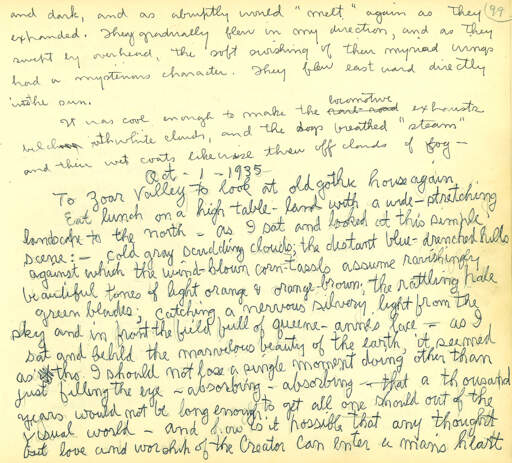 and dark, and as abruptly would "melt" again as they 99
expanded. They gradually flew in my direction, and as they
swept by overhead, the soft swishing of their myriad wings
had a mysterious character. They flew eastward directly
into the sun.
It was cool enough to make the locomotive exhausts
white clouds, and the dogs breathed "steam"
and their wet coats likewise threw off clouds of fog —
Oct - 1 - 1935 -
To Zoar Valley to look at old gothic house again
Eat lunch on a high table-land with a wide-stretching
landscape to the north - as I sat and looked at this simple
scene:- cold gray scudding clouds; the distant blue-drenched hills
against which the wind-blown corn-tassels assume ravishingly
beautiful tones of light orange & orange-brown, the rattling pale
green blades, catching a nervous silvery light from the
sky and in front the field full of queene-annes lace - as I
sat and beheld the marvelous beauty of the earth, it seemed
as tho I should not lose a single moment doing other than
just filling the eye - absorbing - absorbing - that a thousand
years would not be long enough to get all one should out of the
visual world - and how is it possible that any thought
but love and worship of the Creator can enter a man's heart